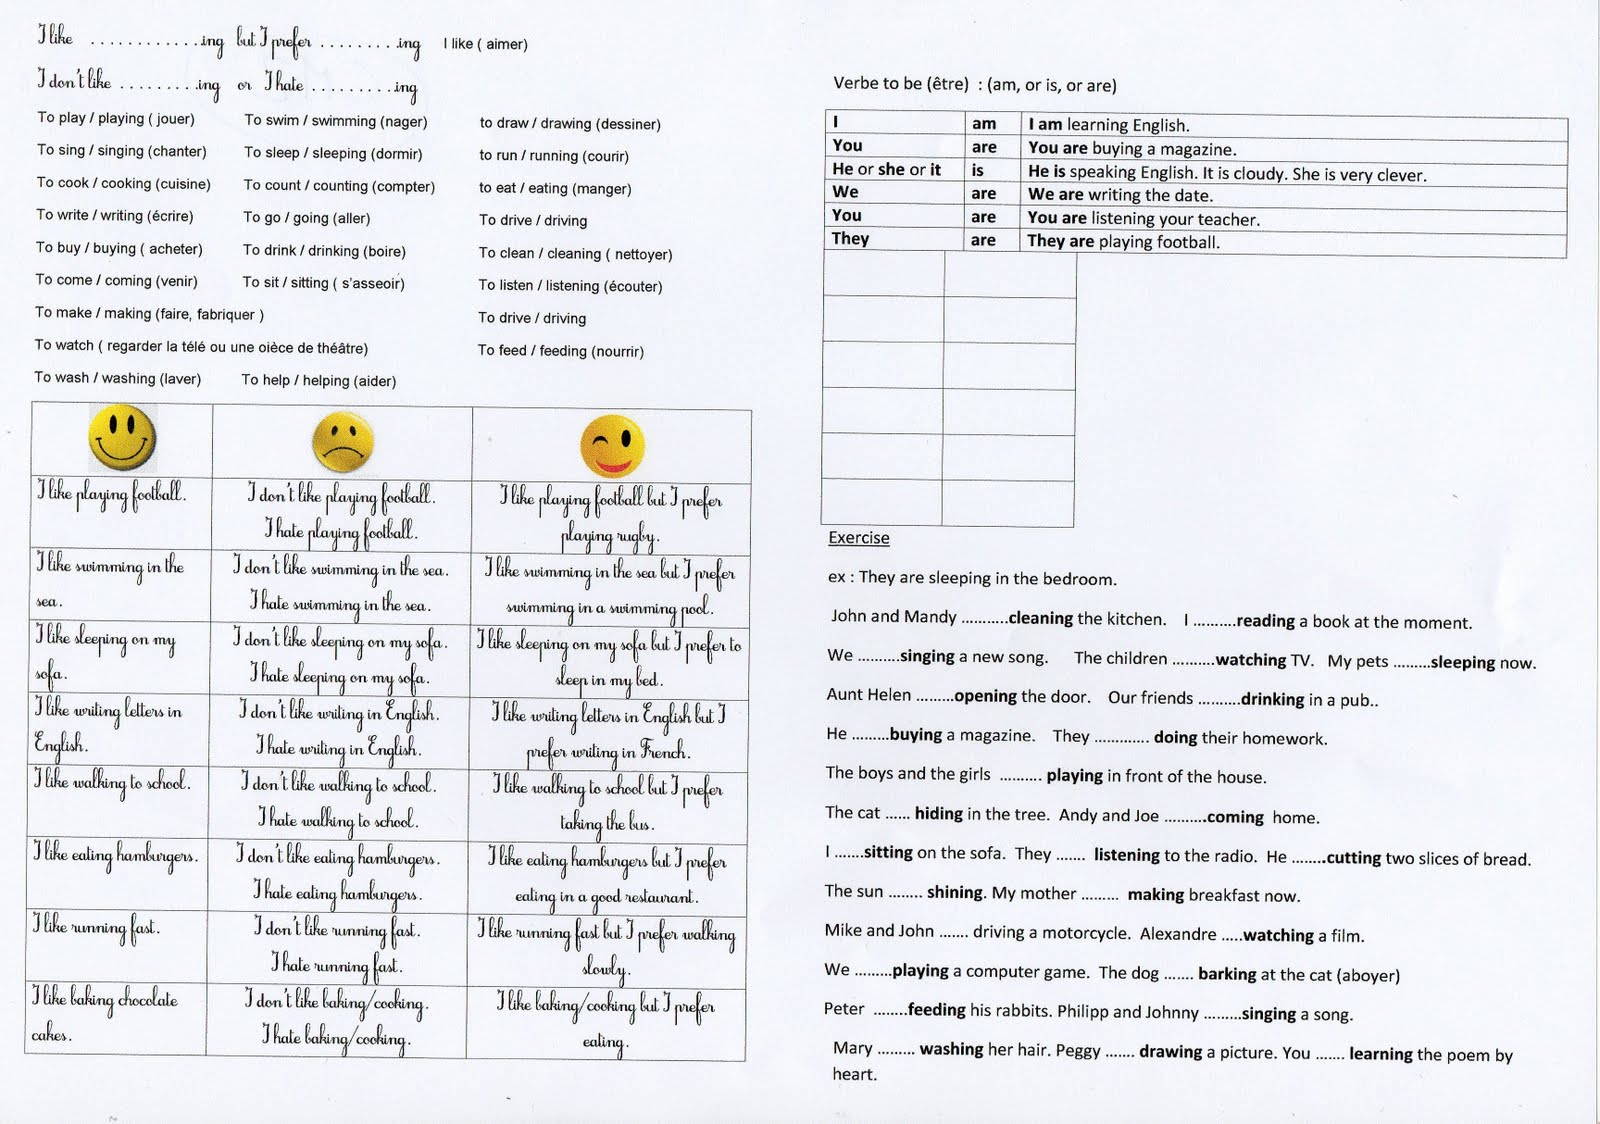 I like ............ing but I prefer ........ing I like ( aimer)
I don't like .........ing or I hate .........ing
To play / playing ( jouer) To swim / swimming (nager) to draw / drawing (dessiner)
To sing / singing (chanter) To sleep / sleeping (dormir) to run / running (courir)
To cook / cooking (cuisine) To count / counting (compter) to eat / eating (manger)
To write / writing (écrire) To go / going (aller) To drive / driving
To buy / buying ( acheter) To drink / drinking (boire) To clean / cleaning ( nettoyer)
To come / coming (venir) To sit / sitting ( s'asseoir) To listen / listening (écouter)
To make / making (faire, fabriquer ) To drive / driving
To watch ( regarder la télé ou une oièce de théâtre) To feed / feeding (nourrir)
To wash / washing (laver) To help / helping (aider)
I like playing football. I don't like playing football. I like playing football but I prefer
I hate playing football. playing rugby.
I like swimming in the I don't like swimming in the sea. I like swimming in the sea but I prefer
sea. I hate swimming in the sea. swimming in a swimming pool.
I like sleeping on my I don't like sleeping on my sofa. I like sleeping on my sofa but I prefer to
sofa. I hate sleeping on my sofa. sleep in my bed.
I like writing letters in I don't like writing in English. I like writing letters in English but I
English. I hate writing in English. prefer writing in French.
I like walking to school. I don't like walking to school. I like walking to school but I prefer
I hate walking to school. taking the bus.
I like eating hamburgers. I don't like eating hamburgers. I like eating hamburgers but I prefer
I hate eating hamburgers. eating in a good restaurant.
I like running fast. I don't like running fast. I like running fast but I prefer walking
I hate running fast. slowly.
I like baking chocolate I don't like baking/cooking. I like baking/cooking but I prefer
cakes. I hate baking/cooking. eating.
Verbe to be (être) : (am, or is, or are)
I am I am learning English.
You are You are buying a magazine.
He or she or it is He is speaking English. It is cloudy. She is very clever.
We are We are writing the date.
You are You are listening your teacher.
They are They are playing football.
Exercise
ex : They are sleeping in the bedroom.
John and Mandy ..........cleaning the kitchen. I ..........reading a book at the moment.
We ..........singing a new song. The children ..........watching TV. My pets .........sleeping now.
Aunt Helen .........opening the door. Our friends ..........drinking in a pub..
He .........buying a magazine. They ............. doing their homework.
The boys and the girls .......... playing in front of the house.
The cat ...... hiding in the tree. Andy and Joe ..........coming home.
I .......sitting on the sofa. They ....... listening to the radio. He ........cutting two slices of bread.
The sun ........ shining. My mother ......... making breakfast now.
Mike and John ....... driving a motorcycle. Alexandre .....watching a film.
We .........playing a computer game. The dog ....... barking at the cat (aboyer)
Peter ........feeding his rabbits. Philipp and Johnny .........singing a song.
Mary ......... washing her hair. Peggy ....... drawing a picture. You ....... learning the poem by
heart.